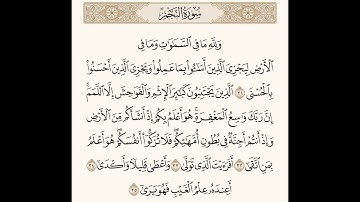 سُورَةُ النَّجْمِ
وَلِلَّهِ مَا فِي السَّمَٰوَٰتِ وَمَا فِي
الْأَرْضِ لِيَجْزِيَ الَّذِينَ أَسَٰٓـُٔوا۟ بِمَا عَمِلُوا۟ وَيَجْزِيَ الَّذِينَ أَحْسَنُوا۟
بِالْحُسْنَى ٣١ الَّذِينَ يَجْتَنِبُونَ كَبَٰٓئِرَ الْإِثْمِ وَالْفَوَٰحِشَ إِلَّا اللَّمَمَ
إِنَّ رَبَّكَ وَٰسِعُ الْمَغْفِرَةِ هُوَ أَعْلَمُ بِكُمْ إِذْ أَنشَأَكُم مِّنَ الْأَرْضِ
وَإِذْ أَنتُمْ أَجِنَّةٌ فِي بُطُونِ أُمَّهَٰتِكُمْ فَلَا تُزَكُّوٓا۟ أَنفُسَكُمْ هُوَ أَعْلَمُ
بِمَنِ اتَّقَىٰٓ ٣٢ أَفَرَءَيْتَ الَّذِي تَوَلَّىٰ ٣٣ وَأَعْطَىٰ قَلِيلًا وَأَكْدَىٰٓ ٣٤
أَعِندَهُۥ عِلْمُ الْغَيْبِ فَهُوَ يَرَىٰٓ ٣٥